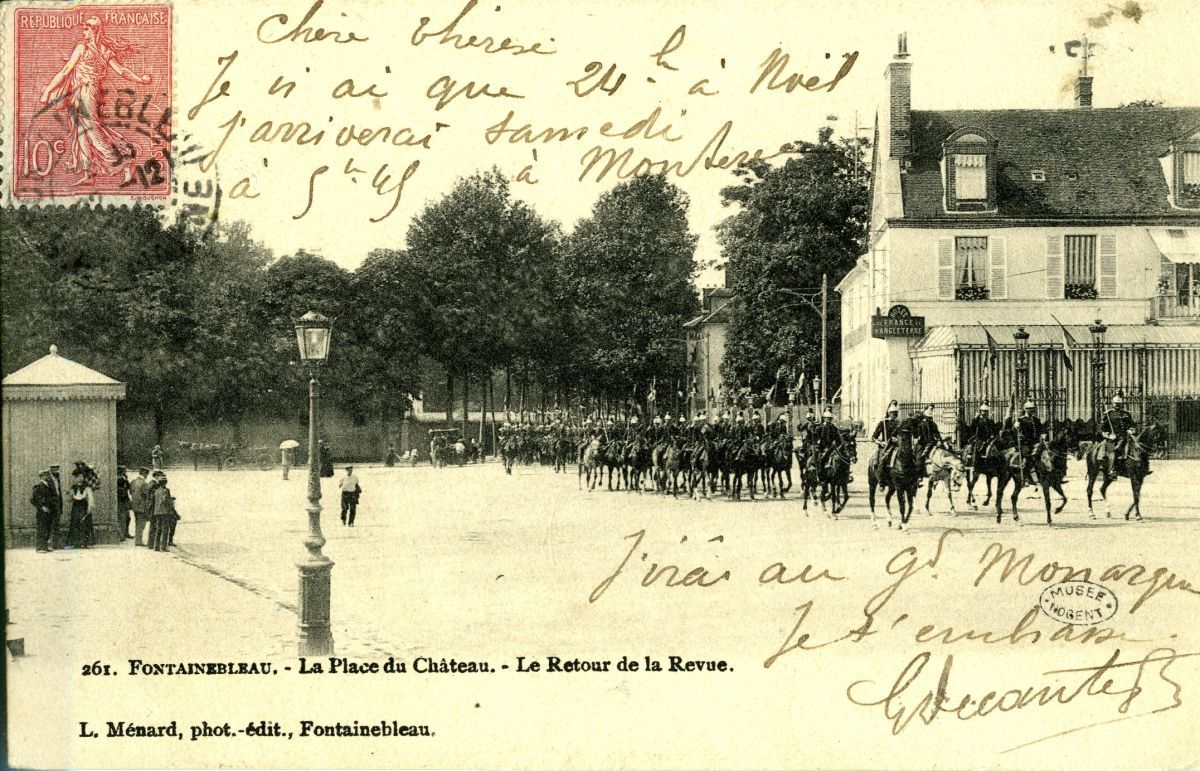 RÉPUBLIQUE FRANÇAISE
10c
E. MOUCHON
Chère Thérèse
Je n ai que 24 h à Noël
j'arriverai samedi
à 5 hr 45 à Montereau
HOTEL
DE FRANCE ET
D'ANGLETERRE
J'irai au Gd. Monarque
MUSÉE
NOGENT
Je t'embrasse.
261. FONTAINEBLEAU. - La Place du Château. - Le Retour de la Revue.
L. Ménard, phot.-édit., Fontainebleau.